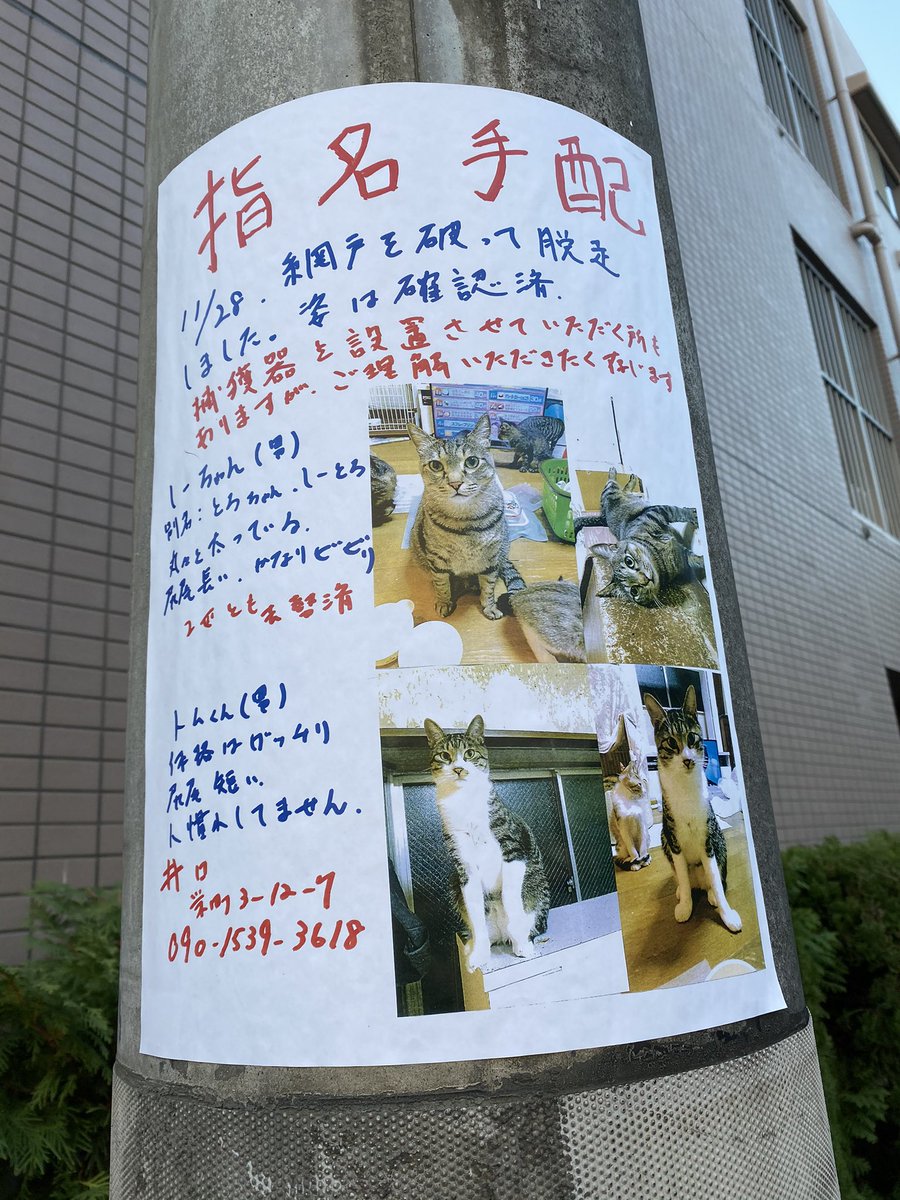 指名手配
11/28. 網戸を破って脱走
しました。姿は確認済.
捕獲器を設置させていただく所も
ありますが、ご理解いただきたくなじます
しーちゃん(男)
別名:とろちゃん.しーとろ
丸々と太っている.
尻尾長い. かなりビビり
2ひきとも去勢済
トムくん(男)
体格はガッチリ
尻尾短い.
人慣れしてません.
井口
栄町3-12-7
090-1539-3618